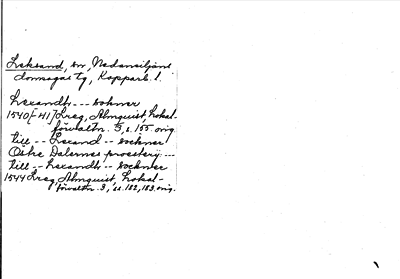 Leksand, sn, Nedansiljans
domsagas tg, Kopparb. l.
Lexandh --- sokner
1540[-41] Lreg, Almquist, Lokal-
förvaltn. 3, s. 155. orig.
till -- Lexand -- sockner
Östre Dalernes prosterij ---
till -- Lexandt -- sockner
1544 Lreg, Almquist, Lokal-
förvaltn. 3, ss. 182, 183. orig.